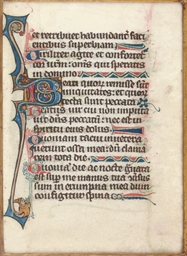 et retribuet habundant faci
entibus superbiam.
Viriliter agite et confortet
cor urm: om̄s qui speratis
in domino.
Beati quor remisse sūt
iniquitates: et quor
tecta sunt peccata.
Beatus uir cui non imputa
uit dōns peccatū: nec est in
spiritu eius dolus.
Quoniam tacui inuetera
uerunt ossa mea: dū clama
rem tota die.
Quoniā die ac nocte grauata
est sup me manus tua: 9uersus
sum in erumpna mea dum
configitur spina.